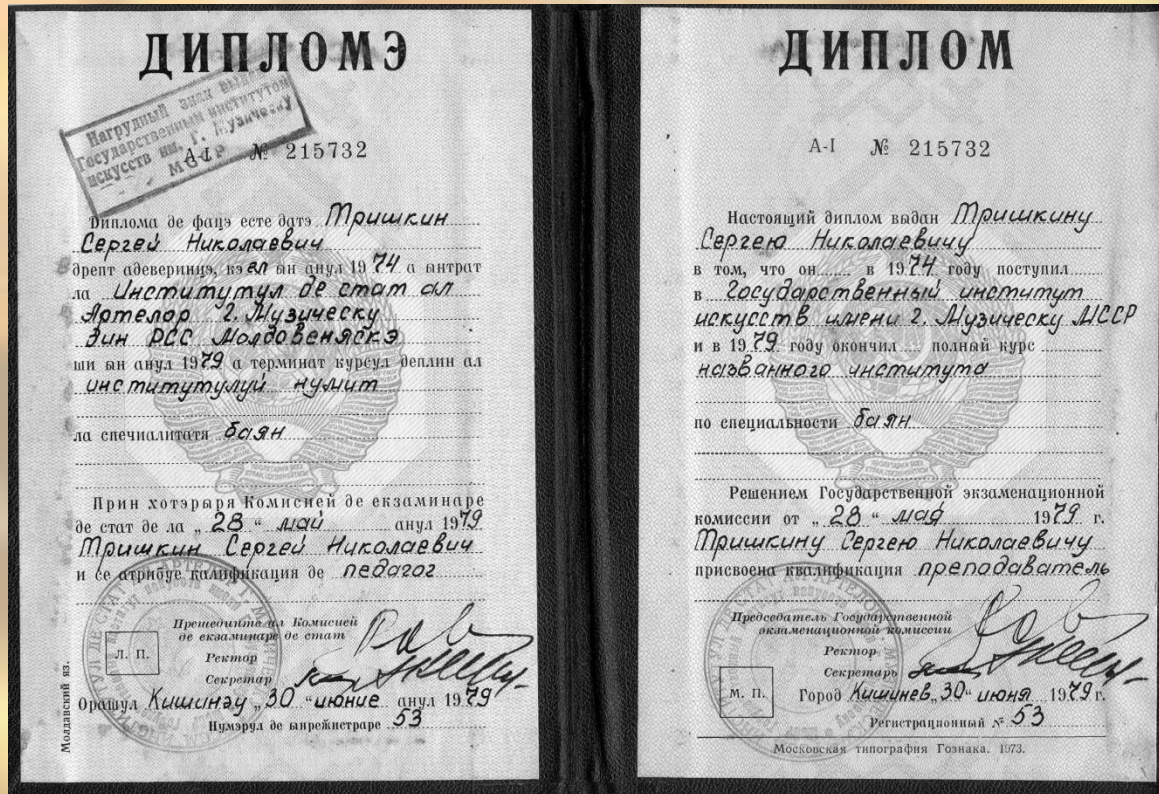 ДИПЛОМЭ
Нагрудный знак выдан
Государственным институтом
искусств им. Г. Музическу
МССР
А-I № 215732
Диплома де фацэ есте датэ Тришкин
Сергей Николаевич
дрепт адеверинцэ, кэ ел ын анул 1974 а ынтрат
ла Институтул де стат ал
Артелор Г. Музическу
дин РСС Молдовеняскэ
ши ын анул 1979 а терминат курсул деплин ал
институтулуй нумит
ла спечиалитатя баян
Прин хотэрыря Комисией де екзаминаре
де стат де ла „ 28 “ май анул 1979
Тришкин Сергей Николаевич
и се атрибуе калификация де педагог
Прешединтеле ал Комисией
де екзаминаре де стат
Л. П.
Ректор
Секретар
Орашул Кишинэу „30 “ июние анул 1979
Нумэрул де ынрежистраре 53
Молдавский яз.
ДИПЛОМ
А-I № 215732
Настоящий диплом выдан Тришкину
Сергею Николаевичу
в том, что он в 1974 году поступил
в Государственный институт
искусств имени Г. Музическу МССР
и в 1979 году окончил полный курс
названного института
по специальности баян
Решением Государственной экзаменационной
комиссии от „ 28 “ мая 1979 г.
Тришкину Сергею Николаевичу
присвоена квалификация преподаватель
Председатель Государственной
экзаменационной комиссии
Ректор
Секретарь
М. П.
Город Кишинев „30 “ июня 1979 г.
Регистрационный № 53
Московская типография Гознака. 1973.